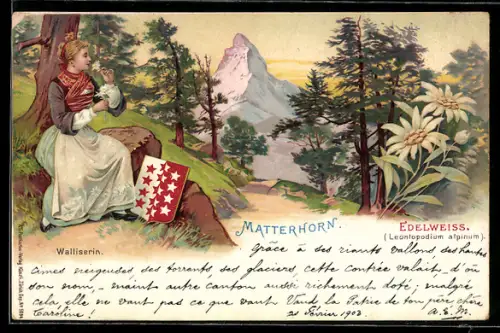 MATTERHORN.
EDELWEISS.
(Leontopodium alpinum).
Walliserin.
Grâce à ses riants vallons, ses hautes
cimes neigeuses, ses torrents ses glaciers, cette contrée valait, d'où
son nom, – maint autre canton aussi richement doté; malgré
cela elle ne vaut pas ce que vaut Vaud la Patrie de ton père chère
Caroline!
21 Février 1903. A. E. M.